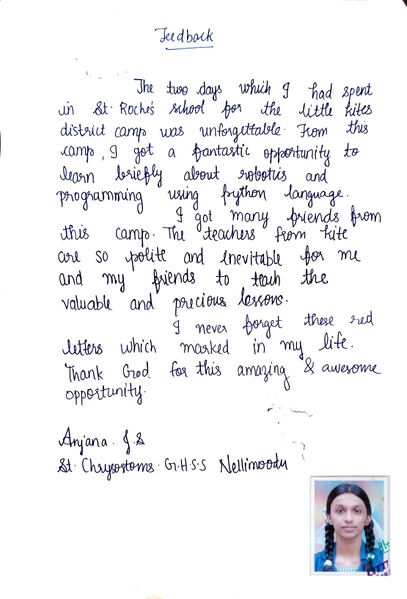 Feedback
The two days which I had spent
in St. Roche's school for the little kites
district camp was unforgettable. From this
camp, I got a fantastic opportunity to
learn briefly about robotics and
programming using python language.
I got many friends from
this camp. The teachers from kite
are so polite and inevitable for me
and my friends to teach the
valuable and precious lessons.
I never forget these red
letters which marked in my life.
Thank God for this amazing & awesome
opportunity.
Anjana. J.S
St. Chrysostoms. G.H.S.S Nellimoodu